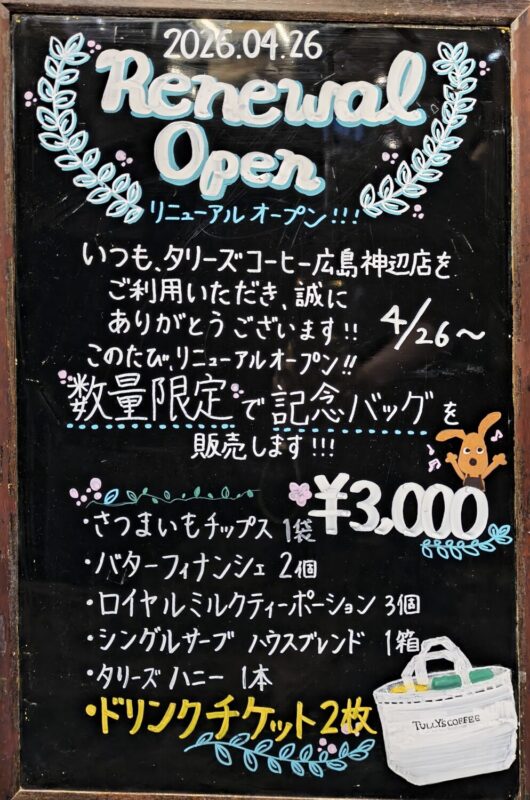 2026.04.26
Renewal
Open
リニューアル オープン!!!
いつも、タリーズコーヒー広島神辺店を
ご利用いただき、誠に
ありがとうございます!!
4/26～
このたび、リニューアルオープン!!
数量限定で記念バッグを
販売します!!!
¥3,000
・さつまいもチップス 1袋
・バターフィナンシェ 2個
・ロイヤルミルクティーポーション 3個
・シングルサーブ ハウスブレンド 1箱
・タリーズ ハニー 1本
・ドリンクチケット2枚
TULLY'S COFFEE